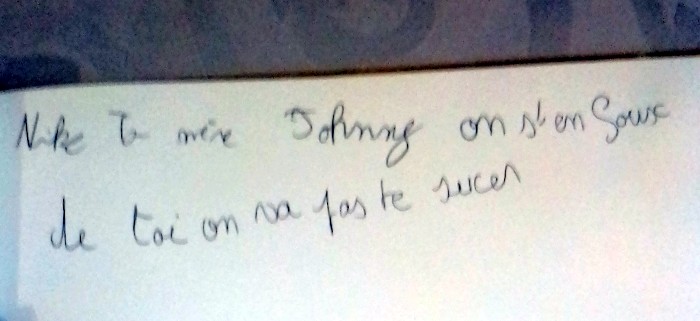 Nike Ta mère Johnny on s'en fous
de toi on va pas te sucer